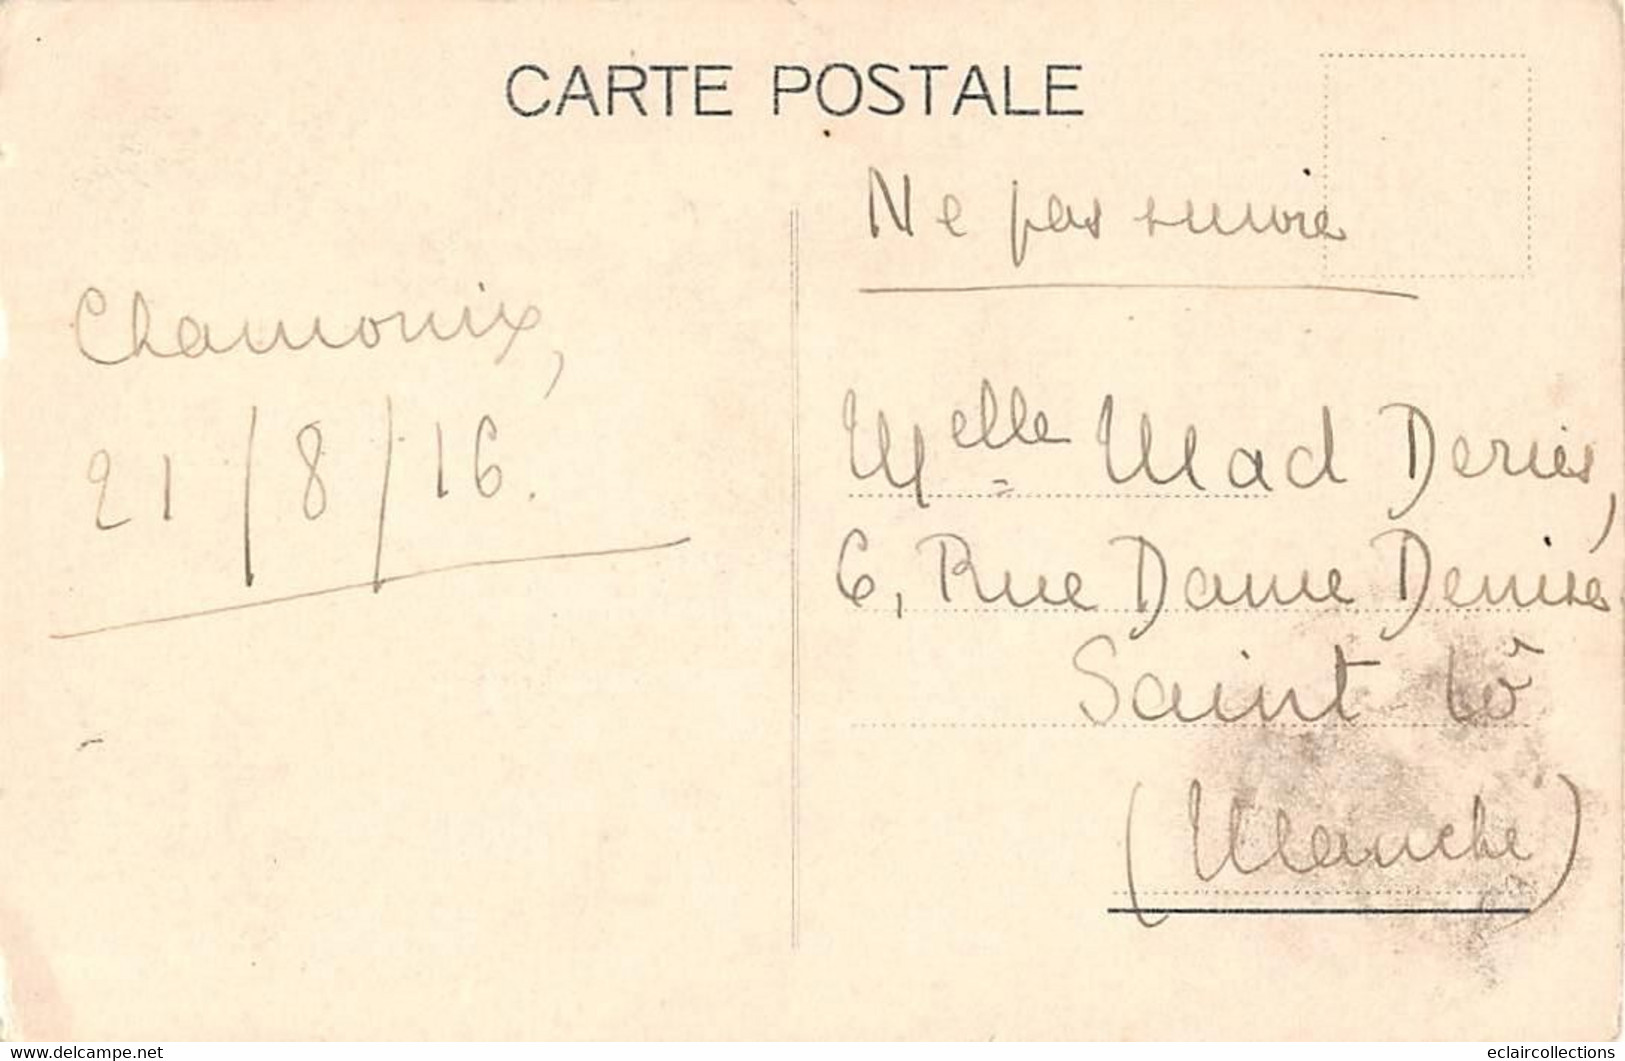 CARTE POSTALE
Ne pas suivre
Chamonix,
21/8/16.
Melle Mad Deries,
6, Rue Dame Denise
Saint Lô
(Manche)
www.delcampe.net
eclaircollections